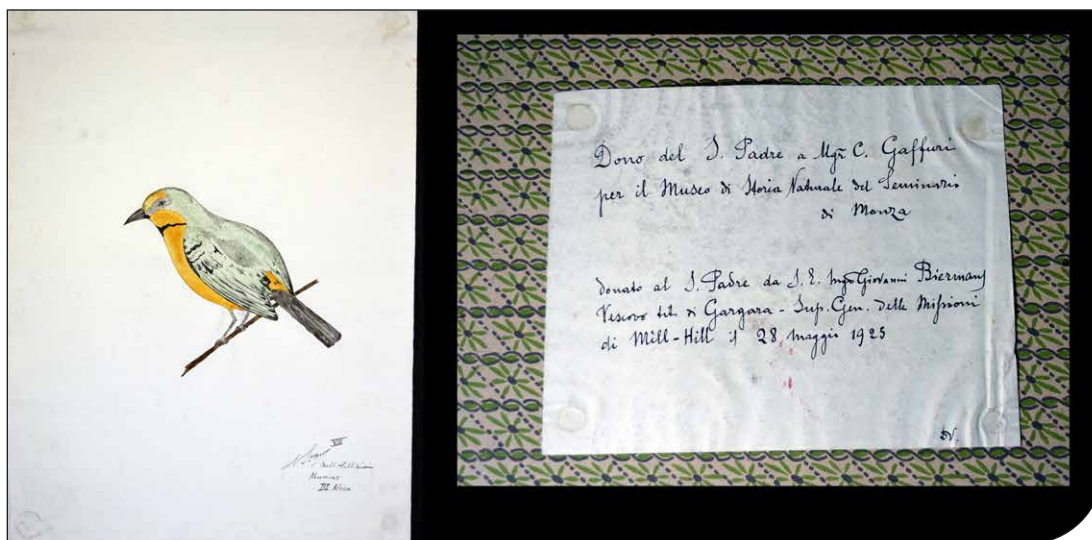 VII
Mill Hill
Mumias
Africa
Dono del S. Padre a Mgr C. Gaffuri
per il Museo di Storia Naturale del Seminario
di Monza
donato al S. Padre da S. E. Giovanni Biermans
Vescovo tit. di Gargara - Sup. Gen. delle Missioni
di Mill-Hill il 28 maggio 1925